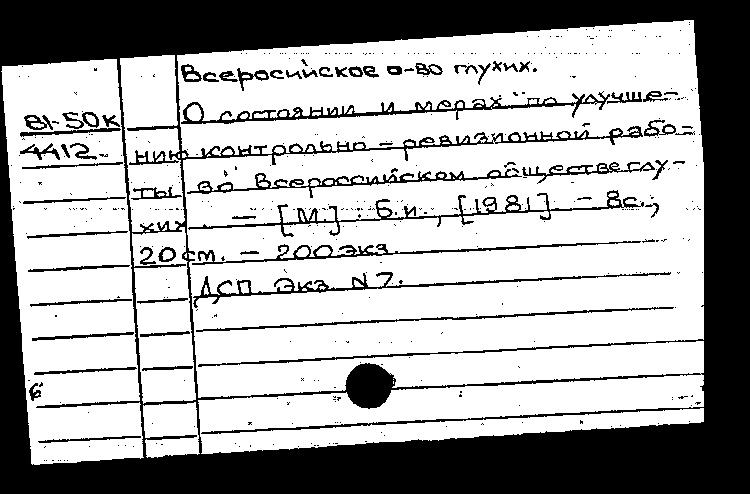 Всеросийское о-во глухих.
81-50к О состоянии и мерах по улучше-
4412- нию контрольно-ревизионной рабо-
ты во Всероссийском обществе глу-
хих. - [М.] : Б.и., [1981] - 8с.;
20см. - 200экз.
ДСП. Экз. N 7.
6